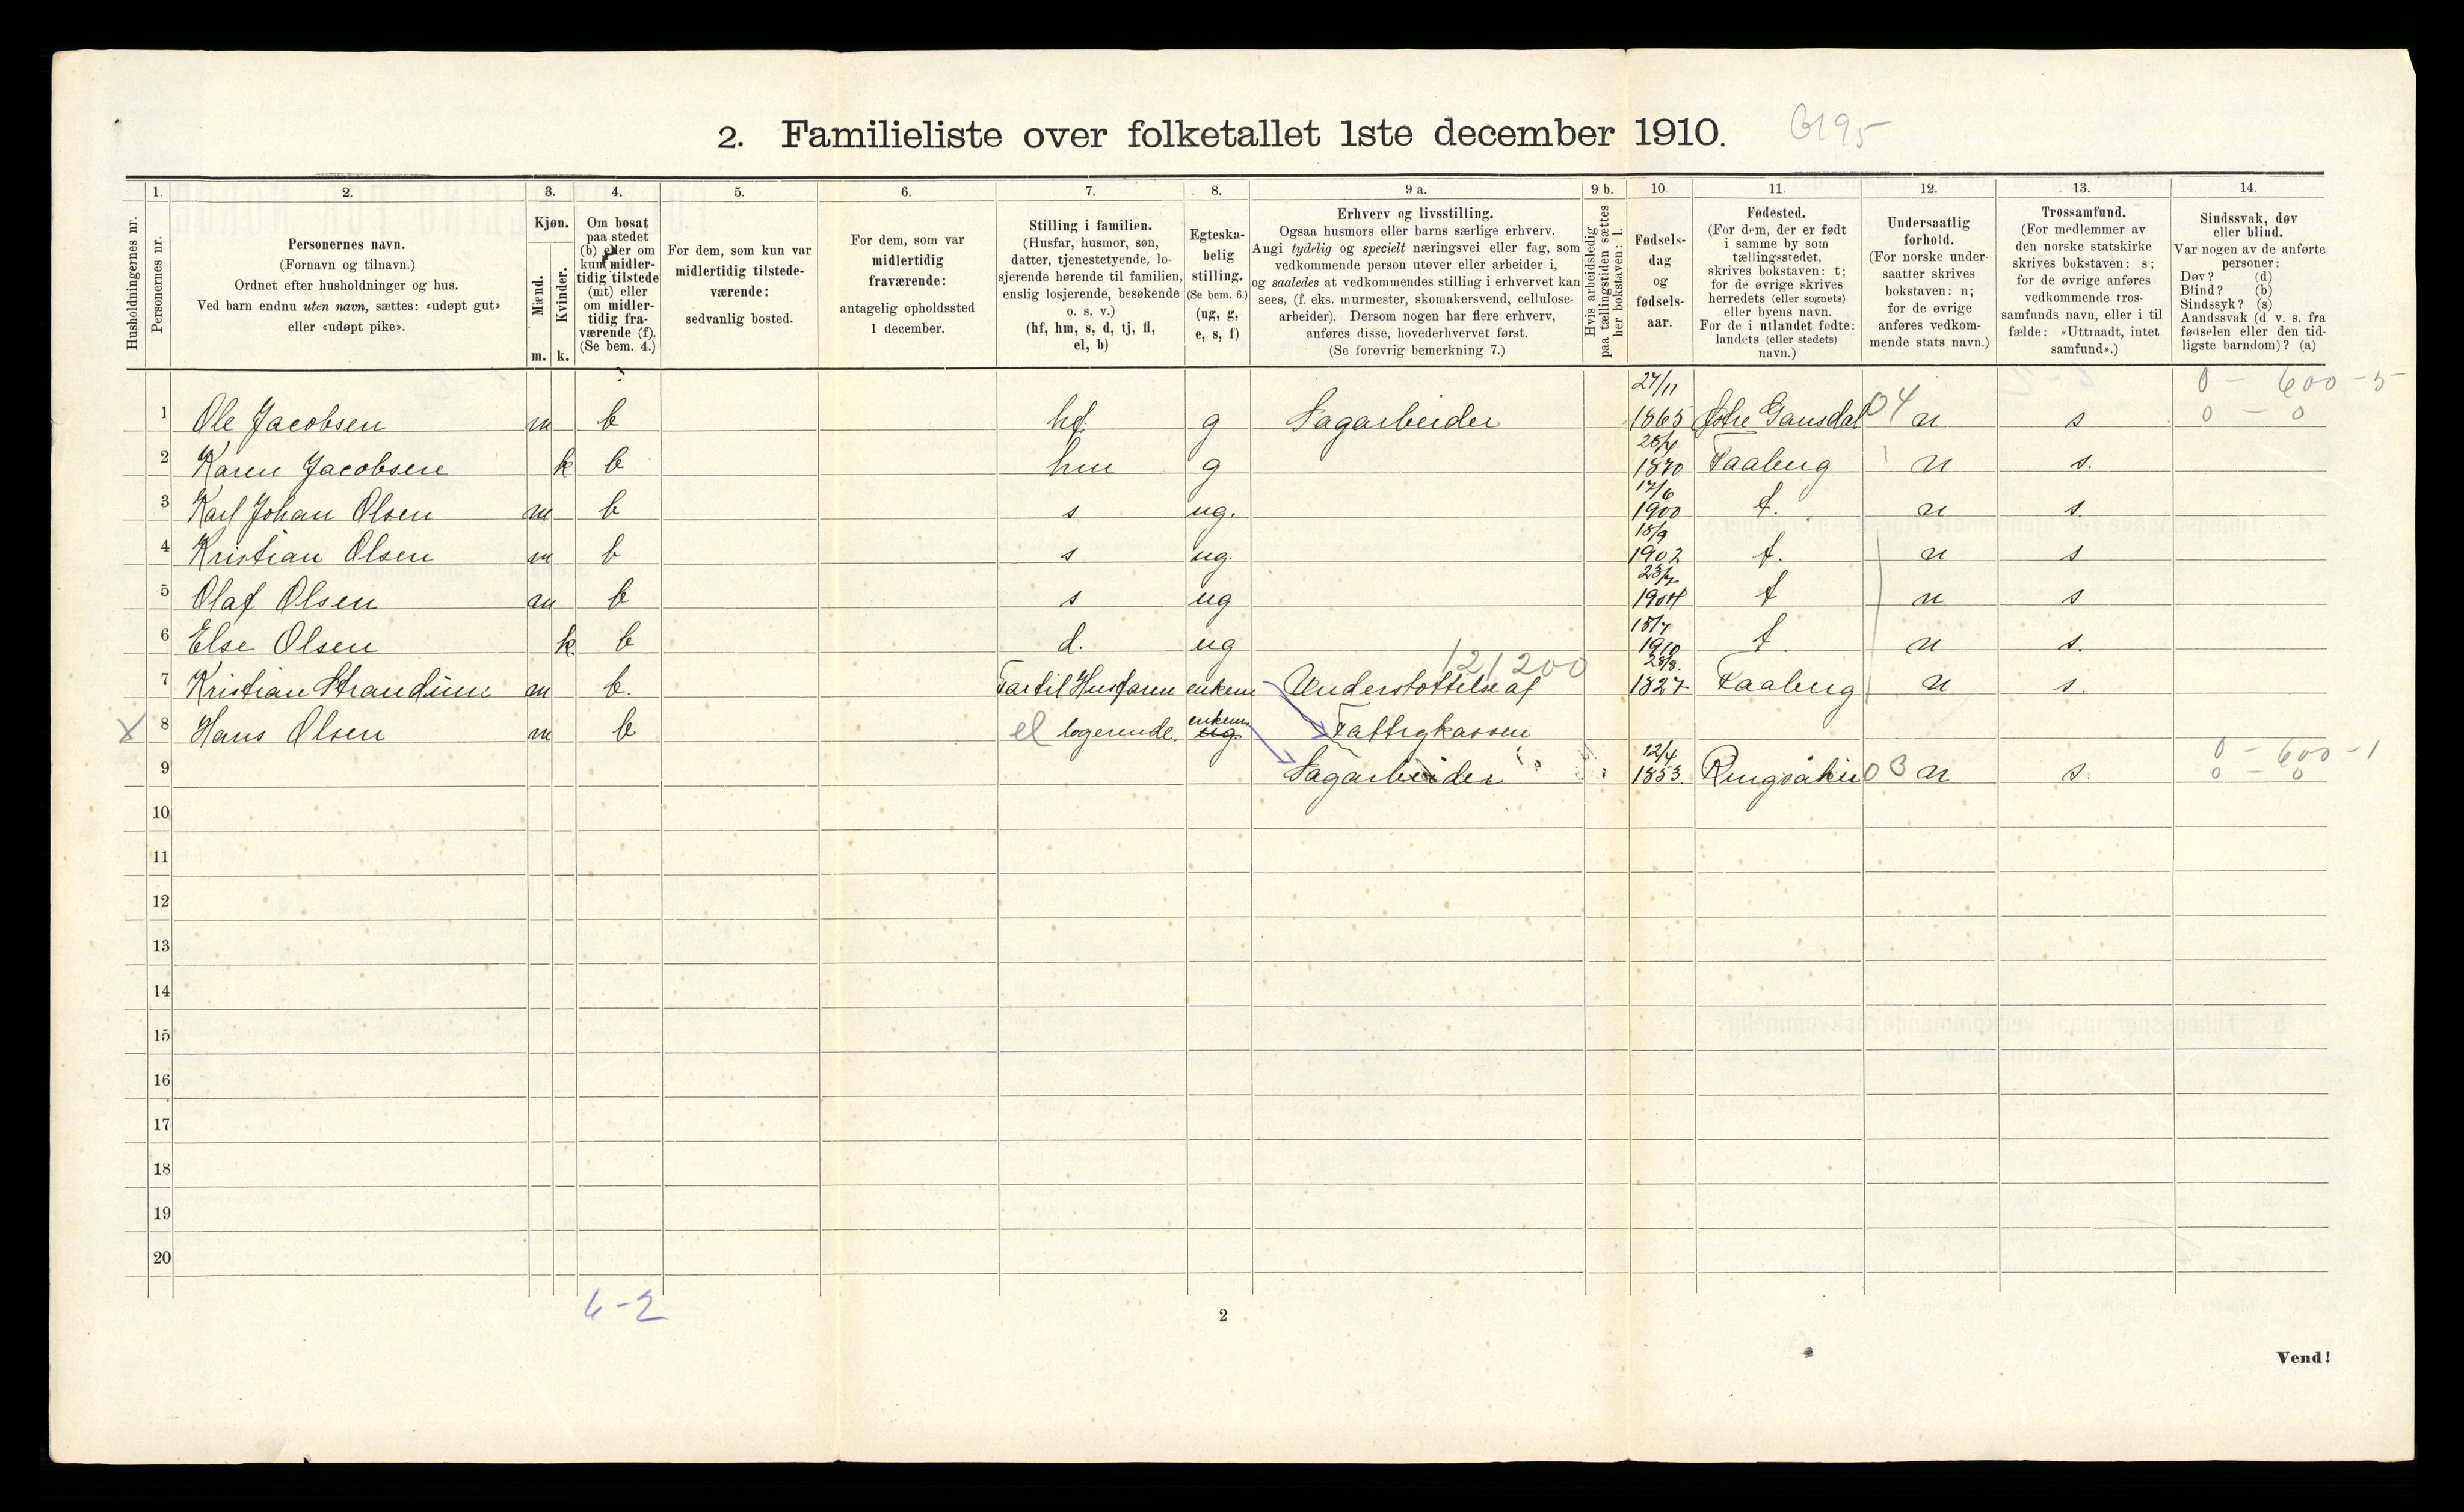 2. Familieliste over folketallet 1ste december 1910.
1. 2. 3. 4. 5. 6. 7. 8. 9 a. 9 b. 10. 11. 12. 13. 14.
Husholdningernes nr.
Personernes nr.
Personernes navn.
(Fornavn og tilnavn.)
Ordnet efter husholdninger og hus.
Ved barn endnu uten navn, sættes: «udøpt gut»
eller «udøpt pike».
Kjøn.
Mænd.
Kvinder.
m. k.
Om bosat
paa stedet
(b) eller om
kun midler-
tidig tilstede
(mt) eller
om midler-
tidig fra-
værende (f).
(Se bem. 4.)
For dem, som kun var
midlertidig tilstede-
værende:
sedvanlig bosted.
For dem, som var
midlertidig
fraværende:
antagelig opholdssted
1 december.
Stilling i familien.
(Husfar, husmor, søn,
datter, tjenestetyende, lo-
sjerende hørende til familien,
enslig losjerende, besøkende
o. s. v.)
(hf, hm, s, d, tj, fl,
el, b)
Egteska-
belig
stilling.
(Se bem. 6.)
(ug, g,
e, s, f)
Erhverv og livsstilling.
Ogsaa husmors eller barns særlige erhverv.
Angi tydelig og specielt næringsvei eller fag, som
vedkommende person utøver eller arbeider i,
og saaledes at vedkommendes stilling i erhvervet kan
sees, (f. eks. murmester, skomakersvend, cellulose-
arbeider). Dersom nogen har flere erhverv,
anføres disse, hovederhvervet først.
(Se forøvrig bemerkning 7.)
Hvis arbeidsledig
paa tællingstiden sættes
her bokstaven: l.
Fødsels-
dag
og
fødsels-
aar.
Fødested.
(For dem, der er født
i samme by som
tællingsstedet,
skrives bokstaven: t;
for de øvrige skrives
herredets (eller sognets)
eller byens navn.
For de i utlandet fødte:
landets (eller stedets)
navn.)
Undersaatlig
forhold.
(For norske under-
saatter skrives
bokstaven: n;
for de øvrige
anføres vedkom-
mende stats navn.)
Trossamfund.
(For medlemmer av
den norske statskirke
skrives bokstaven: s;
for de øvrige anføres
vedkommende tros-
samfunds navn, eller i til
fælde: «Uttraadt, intet
samfund».)
Sindssvak, døv
eller blind.
Var nogen av de anførte
personer:
Døv? (d)
Blind? (b)
Sindssyk? (s)
Aandssvak (d v. s. fra
fødselen eller den tid-
ligste barndom)? (a)
0 - 600 - 5
1 Ole Jacobsen m b hf g Sagarbeider 27/11 1865 Østre Gausdal 04 n s 0 - 0
2 Karen Jacobsen k b hm g 1870 Faaberg n s.
3 Karl Johan Olsen m b s ug. 17/6 1900 t. n s
4 Kristian Olsen m b s ug. 18/9 1902 t. n s
5 Olaf Olsen m b s ug 1904 t n s
6 Else Olsen k b d. ug 15/7 1910 t n s.
121200
7 Kristian Strandium m b. Far til Husfaren enkem Understøttelse af 1827 Faaberg n s.
X 8 Hans Olsen m b el logerende. enkem. ug Fattigkassen
0 - 600 - 1
9 Sagarbeider 12/4 1853. Ringsaker 03 n s. 0 - 0
10
11
12
13
14
15
16
17
18
19
20
6-2
2
Vend!